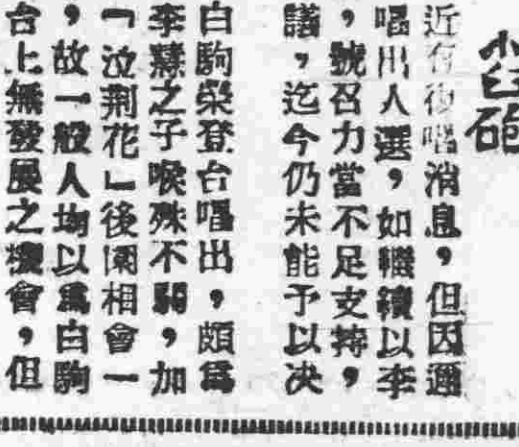 砲
近有復唱消息，但因適
唱出人選，如繼續以李
，號召力當不足支持，
議，迄今仍未能予以决
白駒榮登台唱出，頗爲
李慧之子喉殊不弱，加
「泣荆花」後園相會一
，故一般人均以爲白駒
台上無發展之機會，但